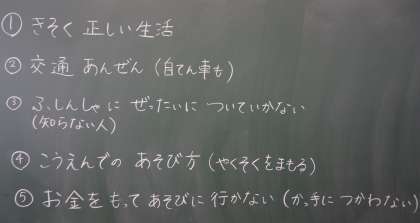 ① きそく 正しい生活
② 交通 あんぜん (自てん車も)
③ ふしんしゃに ぜったいに ついていかない
(知らない人)
④ こうえんでの あそび方 (やくそくをまもる)
⑤ お金をもって あそびに 行かない (かっ手に つかわない)